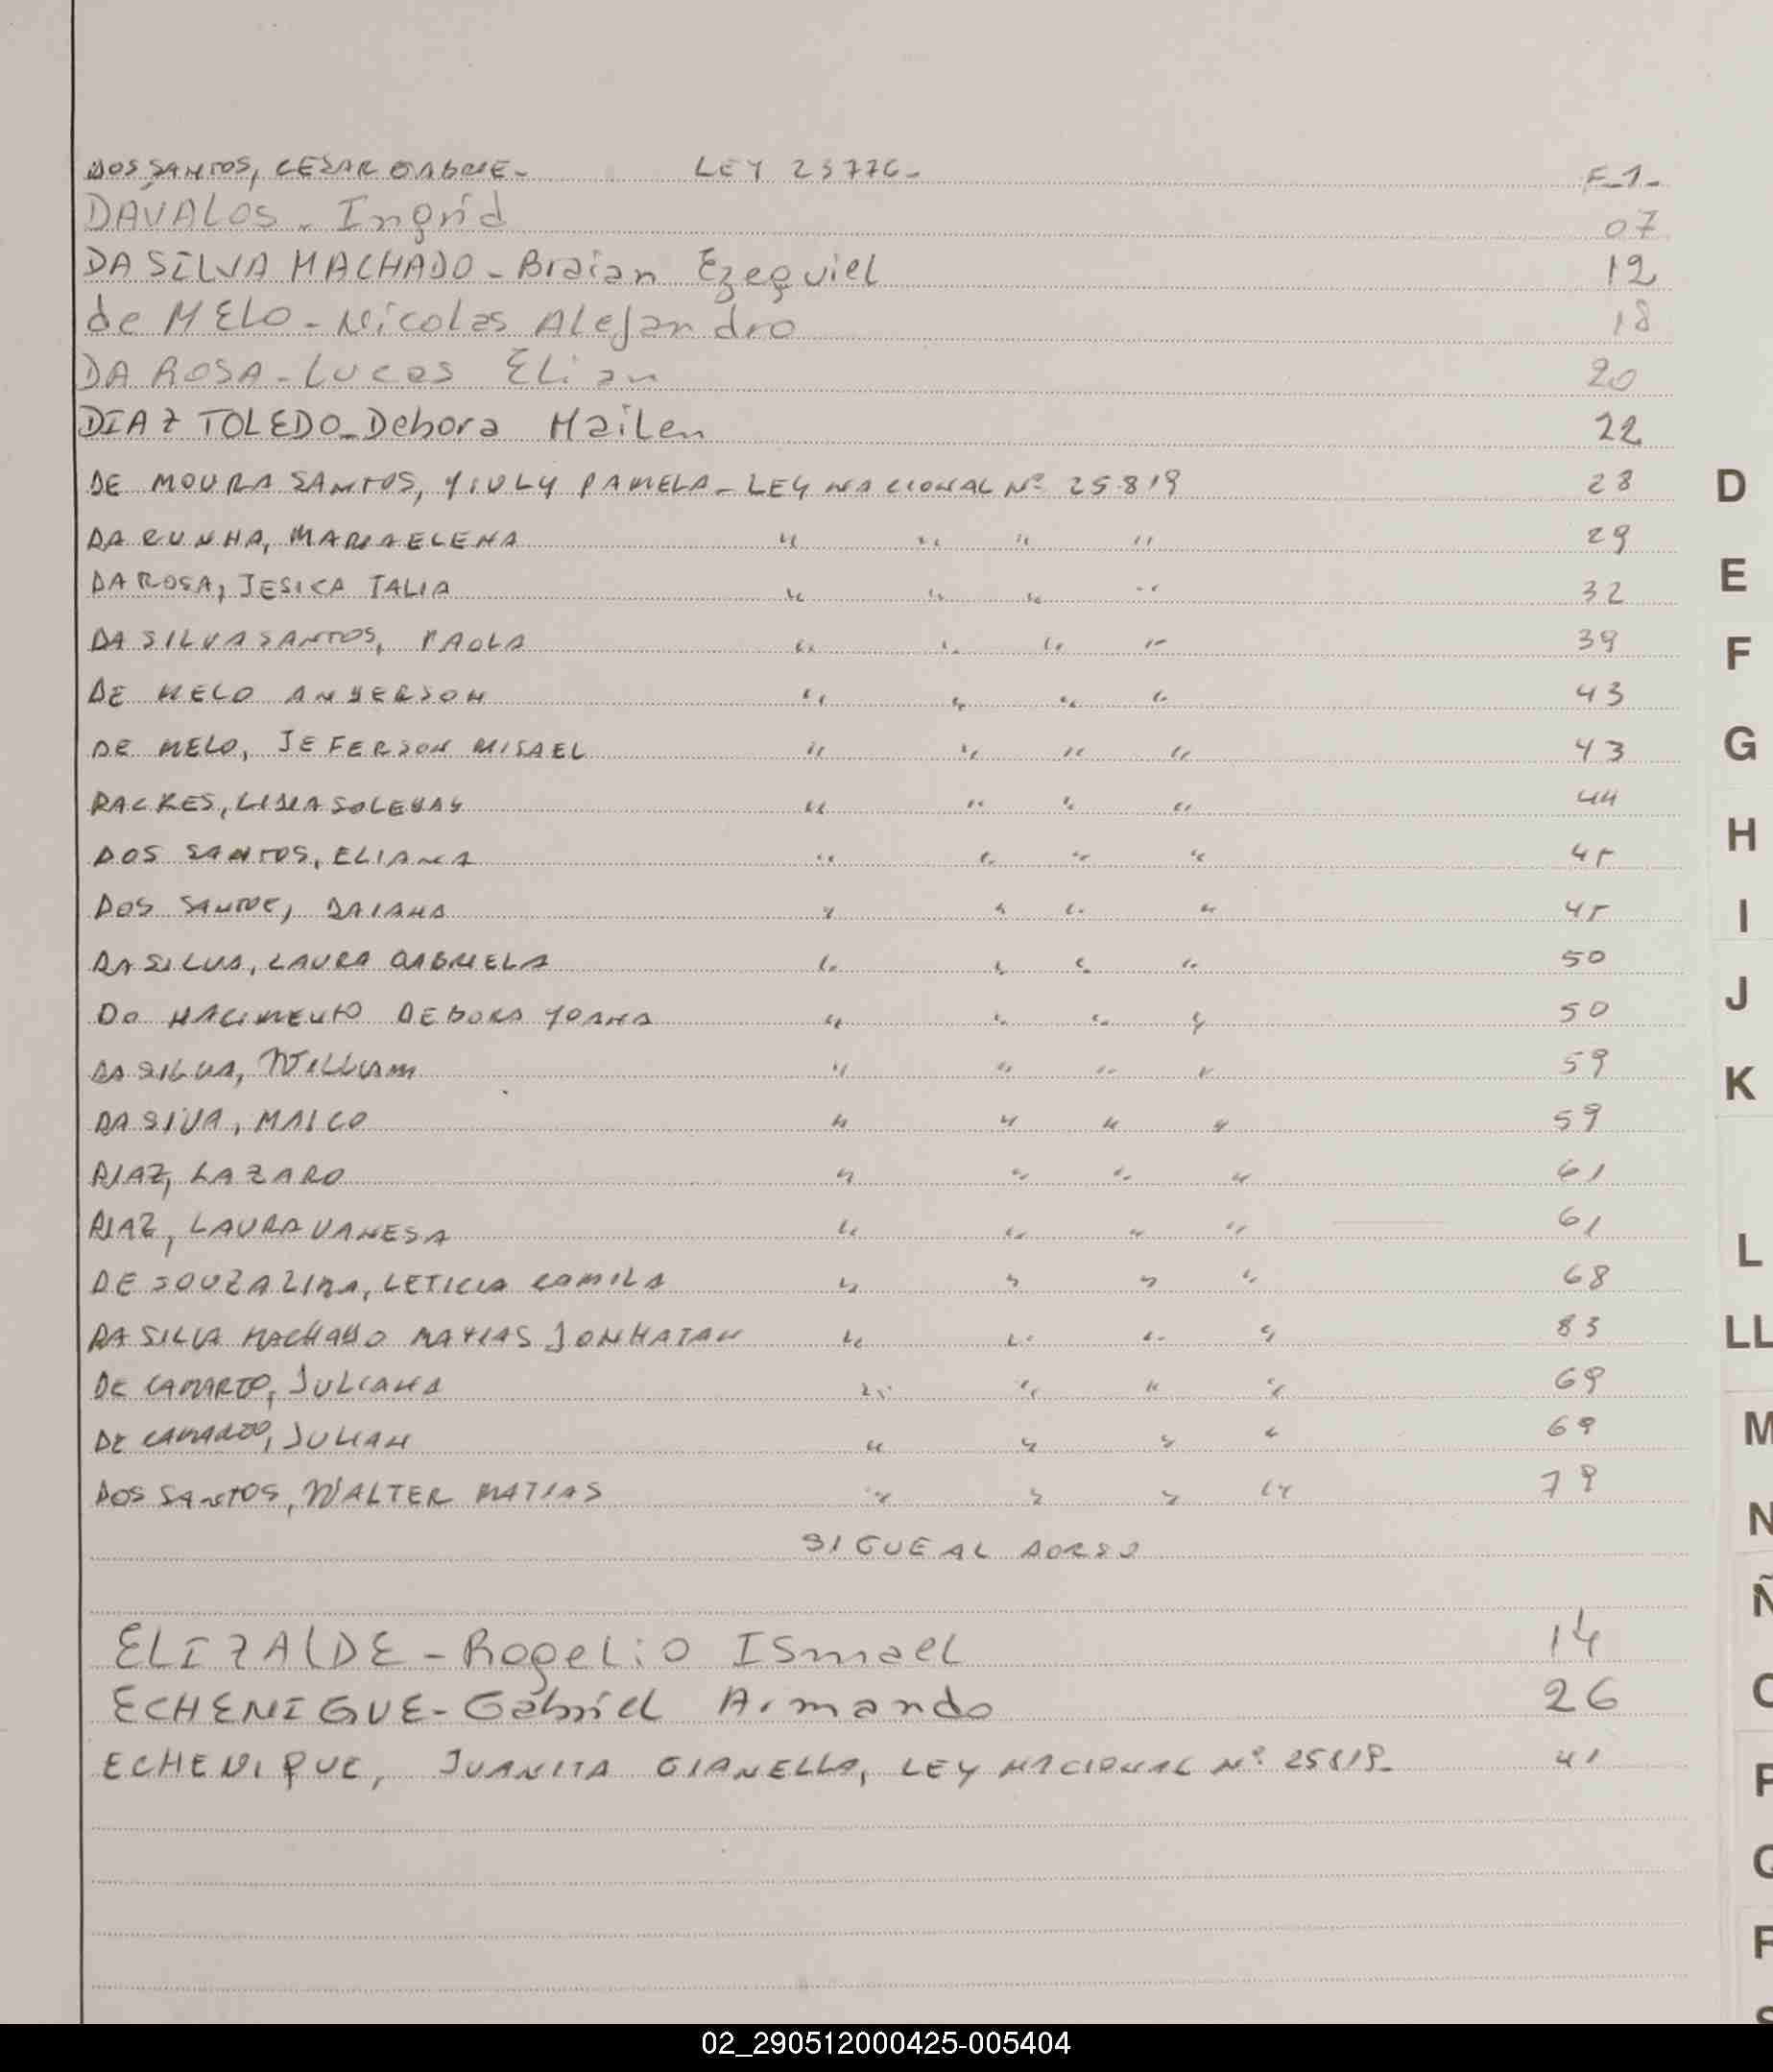 DOS SANTOS, CESAR GABRIE- LEY 23776- F-1-
DAVALOS - Ingrid 07
DA SILVA MACHADO - Braian Ezequiel 12
de MELO - Nicolas Alejandro 18
DA ROSA - Lucas Elian 20
DIAZ TOLEDO - Debora Mailen 22
DE MOURA SANTOS, YIULY PAMELA - LEY NACIONAL Nº 25.819 28
DA CUNHA, MARIA ELENA " " " " 29
DA ROSA, JESICA TALIA " " " " 32
DA SILVA SANTOS, PAOLA " " " " 39
DE MELO ANDERSON " " " " 43
DE MELO, JEFERSON MISAEL " " " " 43
SOLEDAD " " " " 44
DOS SANTOS, ELIANA " " " " 45
DOS SANTOS, DAIANA " " " " 45
DA SILVA, LAURA GABRIELA " " " " 50
DO NACIMENTO DEBORA YOANA " " " " 50
DA SILVA, WILLIAM " " " " 59
DA SIVA, MAICO " " " " 59
DIAZ, LAZARO " " " " 61
DIAZ, LAURA VANESA " " " " 61
DE SOUZA LIMA, LETICIA CAMILA " " " " 68
DA SILVA MACHADO MATIAS JONHATAN " " " " 83
DE CAMARGO, JULIANA " " " " 69
DE CAMARGO, JULIAN " " " " 69
DOS SANTOS, WALTER MATIAS " " " " 79
SIGUE AL DORSO
ELIZALDE - Rogelio Ismael 14
ECHENIGUE - Gabriel Armando 26
ECHENIQUE, JUANITA GIANELLA, LEY NACIONAL Nº 25819- 41
D
E
F
G
H
I
J
K
L
LL
M
N
Ñ
O
P
Q
R
S
02_290512000425-005404